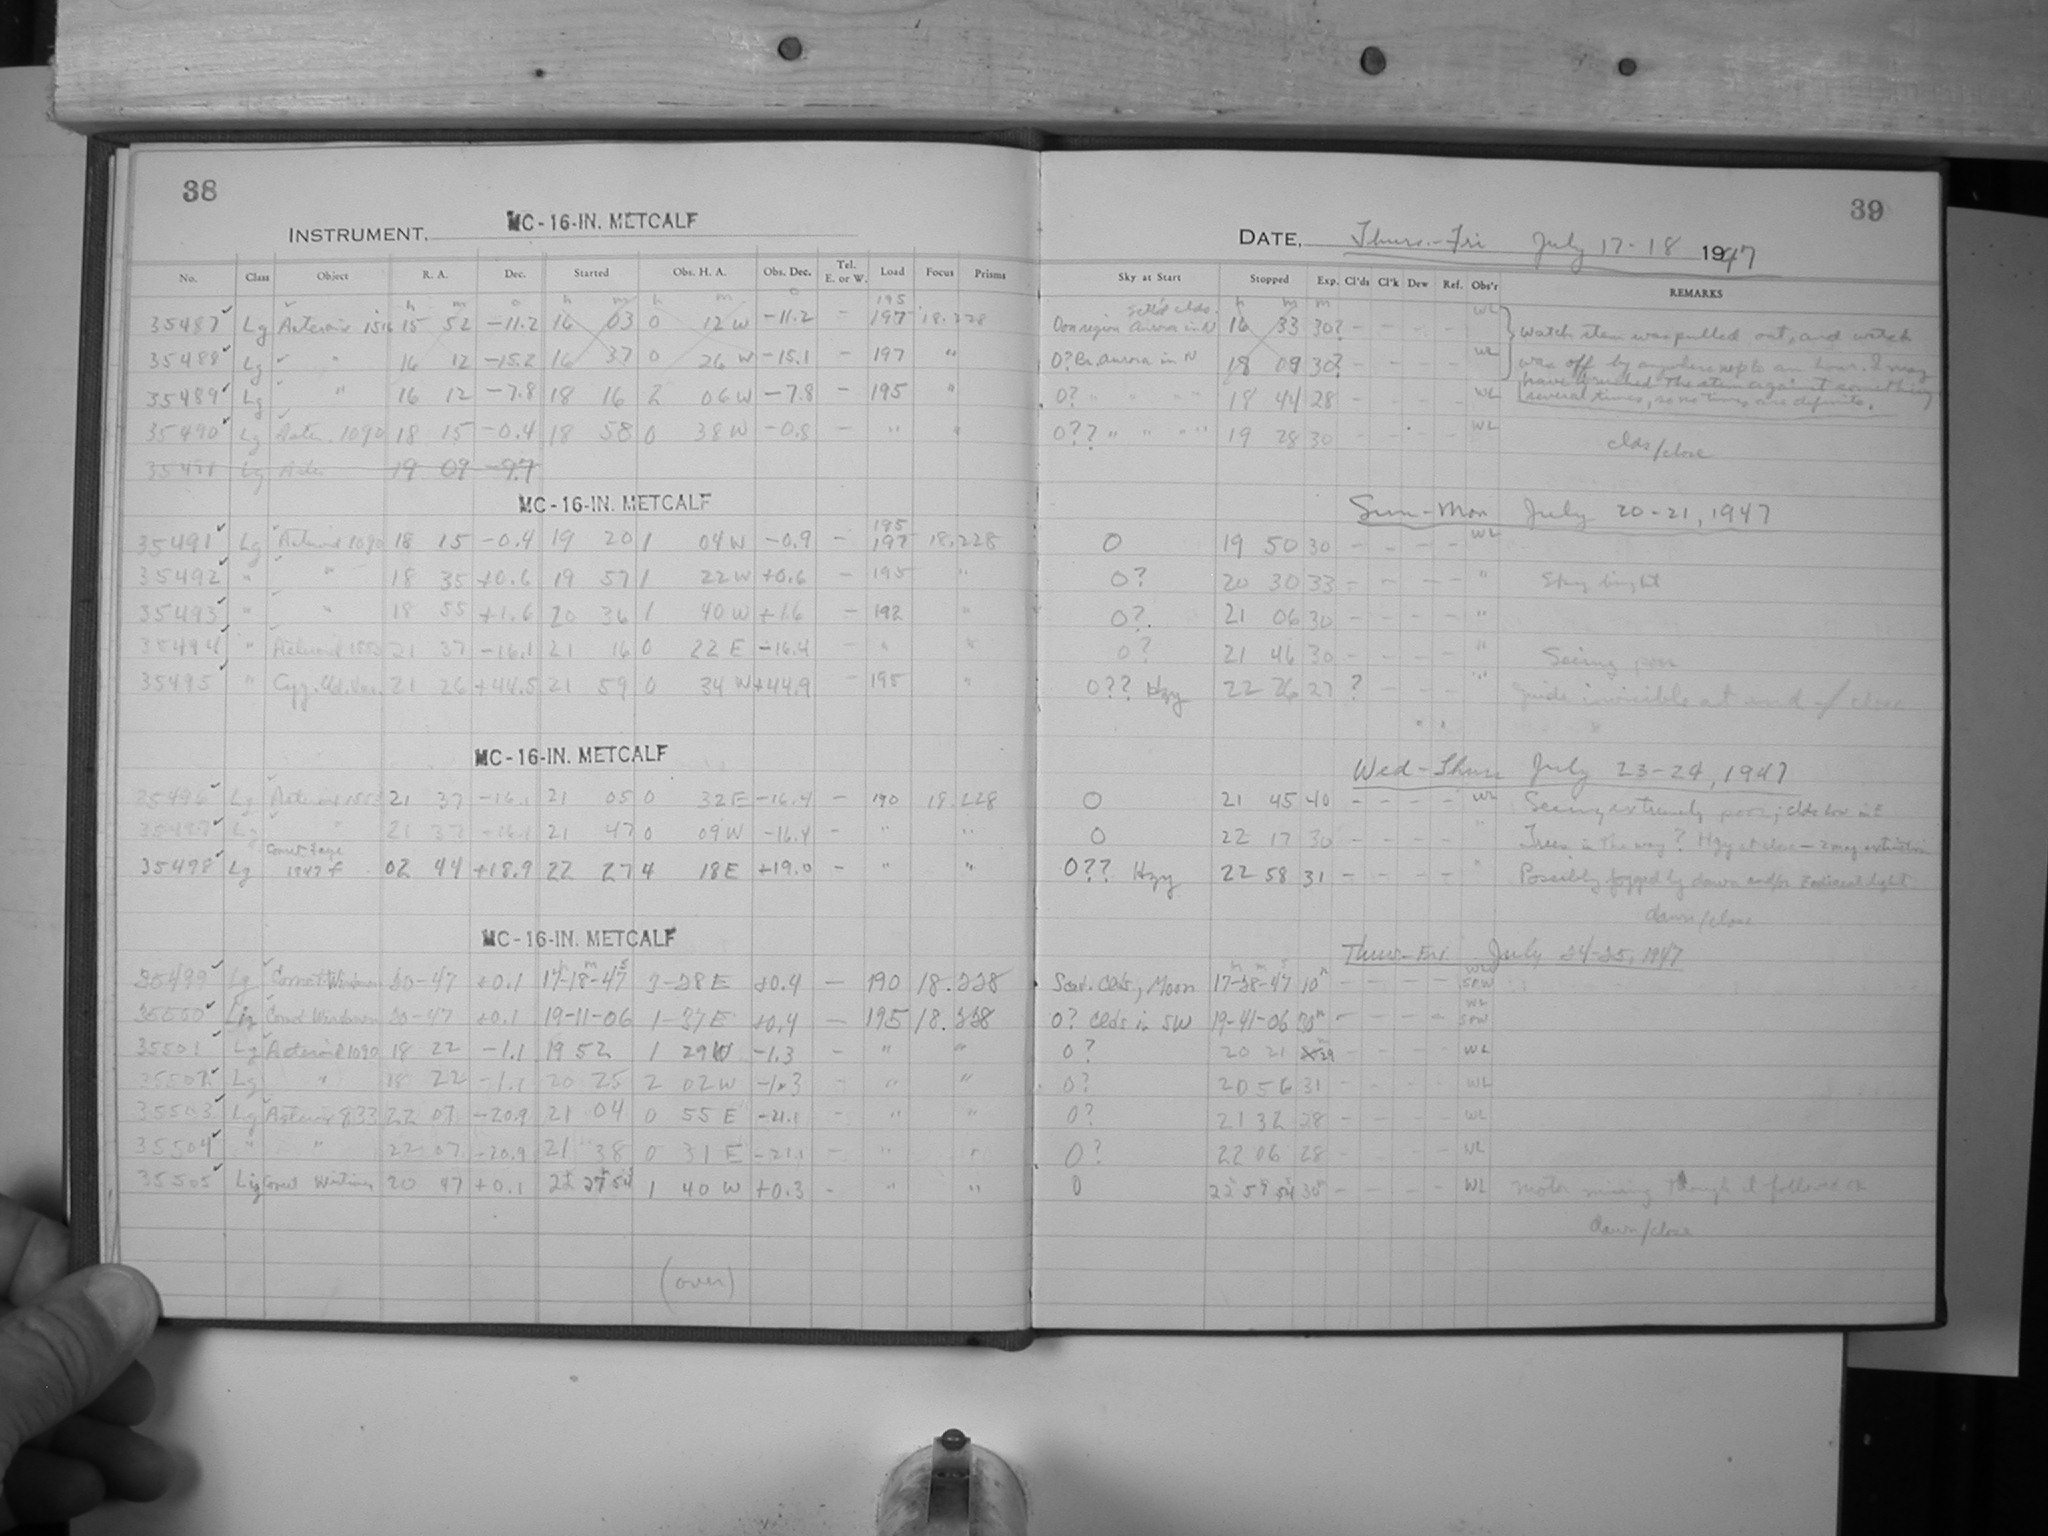 38
INSTRUMENT, MC-16-IN. METCALF
No. Class Object R. A. Dec. Started Obs. H. A. Obs. Dec. Tel. E. or W. Load Focus Prisms
h m o h m h m o 195
35487 Lg Asteroid 1516 15 52 -11.2 16 03 0 12 W -11.2 - 197 18.228
35488 Lg " 16 12 -15.2 16 37 0 26 W -15.1 - 197 "
35489 Lg " 16 12 -7.8 18 16 2 06 W -7.8 - 195 "
35490 Lg Aster. 1090 18 15 -0.4 18 58 0 38 W -0.8 - " "
35491 Lg Aster 19 09 -9.7
MC-16-IN. METCALF
195
35491 Lg Asteroid 1090 18 15 -0.4 19 20 1 04 W -0.9 - 197 18.228
35492 " " 18 35 +0.6 19 57 1 22 W +0.6 - 195 "
35493 " " 18 55 +1.6 20 36 1 40 W +1.6 - 192 "
35494 " Asteroid 21 37 -16.1 21 16 0 22 E -16.4 - " "
35495 " Cyg. 21 26 +44.5 21 59 0 34 W +44.9 - 195 "
MC-16-IN. METCALF
35496 Lg Asteroid 21 37 -16.1 21 05 0 32 E -16.4 - 190 18.228
35497 Lg " 21 37 -16.1 21 47 0 09 W -16.4 - " "
Comet Faye
35498 Lg 1947 f 02 44 +18.9 22 27 4 18 E +19.0 - " "
MC-16-IN. METCALF
h m s
35499 Lg Comet 20-47 +0.1 17-18-47 3-28 E +0.4 - 190 18.228
35500 Lg Comet 20-47 +0.1 19-11-06 1-37 E +0.4 - 195 18.228
35501 Lg Asteroid 1090 18 22 -1.1 19 52 1 29 W -1.3 - " "
35502 Lg " 18 22 -1.1 20 25 2 02 W -1.3 - " "
35503 Lg Asteroid 833 22 07 -20.9 21 04 0 55 E -21.1 - " "
35504 " " 22 07 -20.9 21 38 0 31 E -21.1 - " "
35505 Lg Comet 20 47 +0.1 22 27 54 1 40 W +0.3 - " "
(over)
39
DATE, Thurs.-Fri July 17-18 1947
Sky at Start Stopped Exp. Cl'ds Cl'k Dew Ref. Obs'r REMARKS
h m m
region aurora in N 16 33 30? - - - - WL watch stem was pulled out, and watch
0? Br. aurora in N 18 09 30? - - - - WL was off by anywhere up to an hour. I may
have brushed the stem against something
0? " " " " 18 44 28 - - - - WL several times, so no times are definite.
0?? " " " " 19 28 30 - - - - WL clds/close
Sun-Mon July 20-21, 1947
0 19 50 30 - - - - WL
0? 20 30 33 - - - - " Sky bright
0? 21 06 30 - - - - "
0? 21 46 30 - - - - " Seeing poor
0?? Hzy 22 26 27 ? - - - " guide invisible at end / close
Wed-Thurs July 23-24, 1947
0 21 45 40 - - - - WL Seeing extremely poor; clds low in E
0 22 17 30 - - - - " Trees in the way? Hzy at close - 2 mag extinction
0?? Hzy 22 58 31 - - - - " Possibly fogged by dawn and/or zodiacal light
dawn/close
Thurs-Fri July 24-25, 1947
h m s WL
Scat. Clds, Moon 17-28-47 10 - - - - SPW
WL
0? Clds in SW 19-41-06 30 - - - - SPW
0? 20 21 29 - - - - WL
0? 20 56 31 - - - - WL
0? 21 32 28 - - - - WL
0? 22 06 28 - - - - WL
0 22 57 54 30 - - - - WL motor though I followed ok
dawn/close